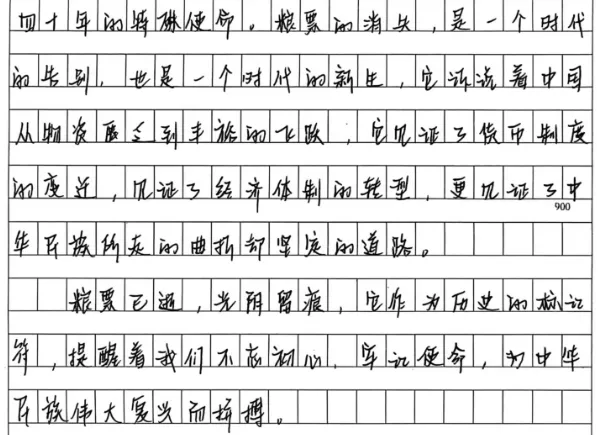 四十年的特殊使命。粮票的消失，是一个时代
的告别，也是一个时代的新生，它诉说着中国
从物资匮乏到丰裕的飞跃，它见证了货币制度
的变迁，见证了经济体制的转型，更见证了中
900
华民族所走的曲折却坚定的道路。
粮票已逝，光阴留痕，它作为历史的标记
符，提醒着我们不忘初心，牢记使命，为中华
民族伟大复兴而拼搏。